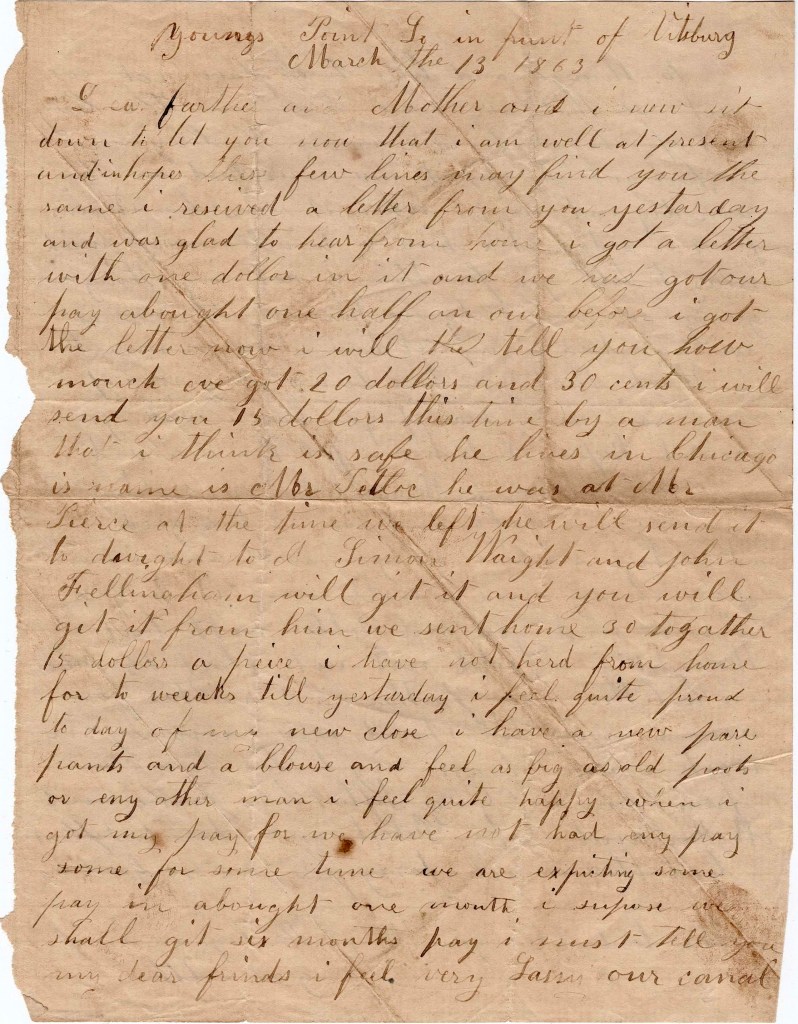 Youngs Point La in frunt of Viteburg
March the 13 1863
Dear farthe and Mother and i now sit
down to let you now that i am well at present
and in hopes these few lines may find you the
same i reseived a letter from you yestarday
and was glad to hear from home i got a letter
with one dollor in it and we had got our
pay abought one half an our before i got
the letter now i will tell you how
mouch eve got 20 dollors and 30 cents i will
send you 15 dollors this time by a man
that i think is safe he lives in Chicago
is name is Mr he was at Mr
Pierce at the time we left he will send it
to dwight to Simon Waight and john
Fellingham will git it and you will
git it from him we sent home 30 togather
15 dollors a peice i have not herd from home
for to weeaks till yestarday i feel quite proud
to day of my new close i have a new pare
pants and a blouse and feel as big as old poots
or eny other man i feel quite happy when i
got my pay for we have not had eny pay
some for some time we are expicting some
pay in abought one month i supose we
shall git six months pay i must tell you
my dear frinds i feel very Sassy our canal